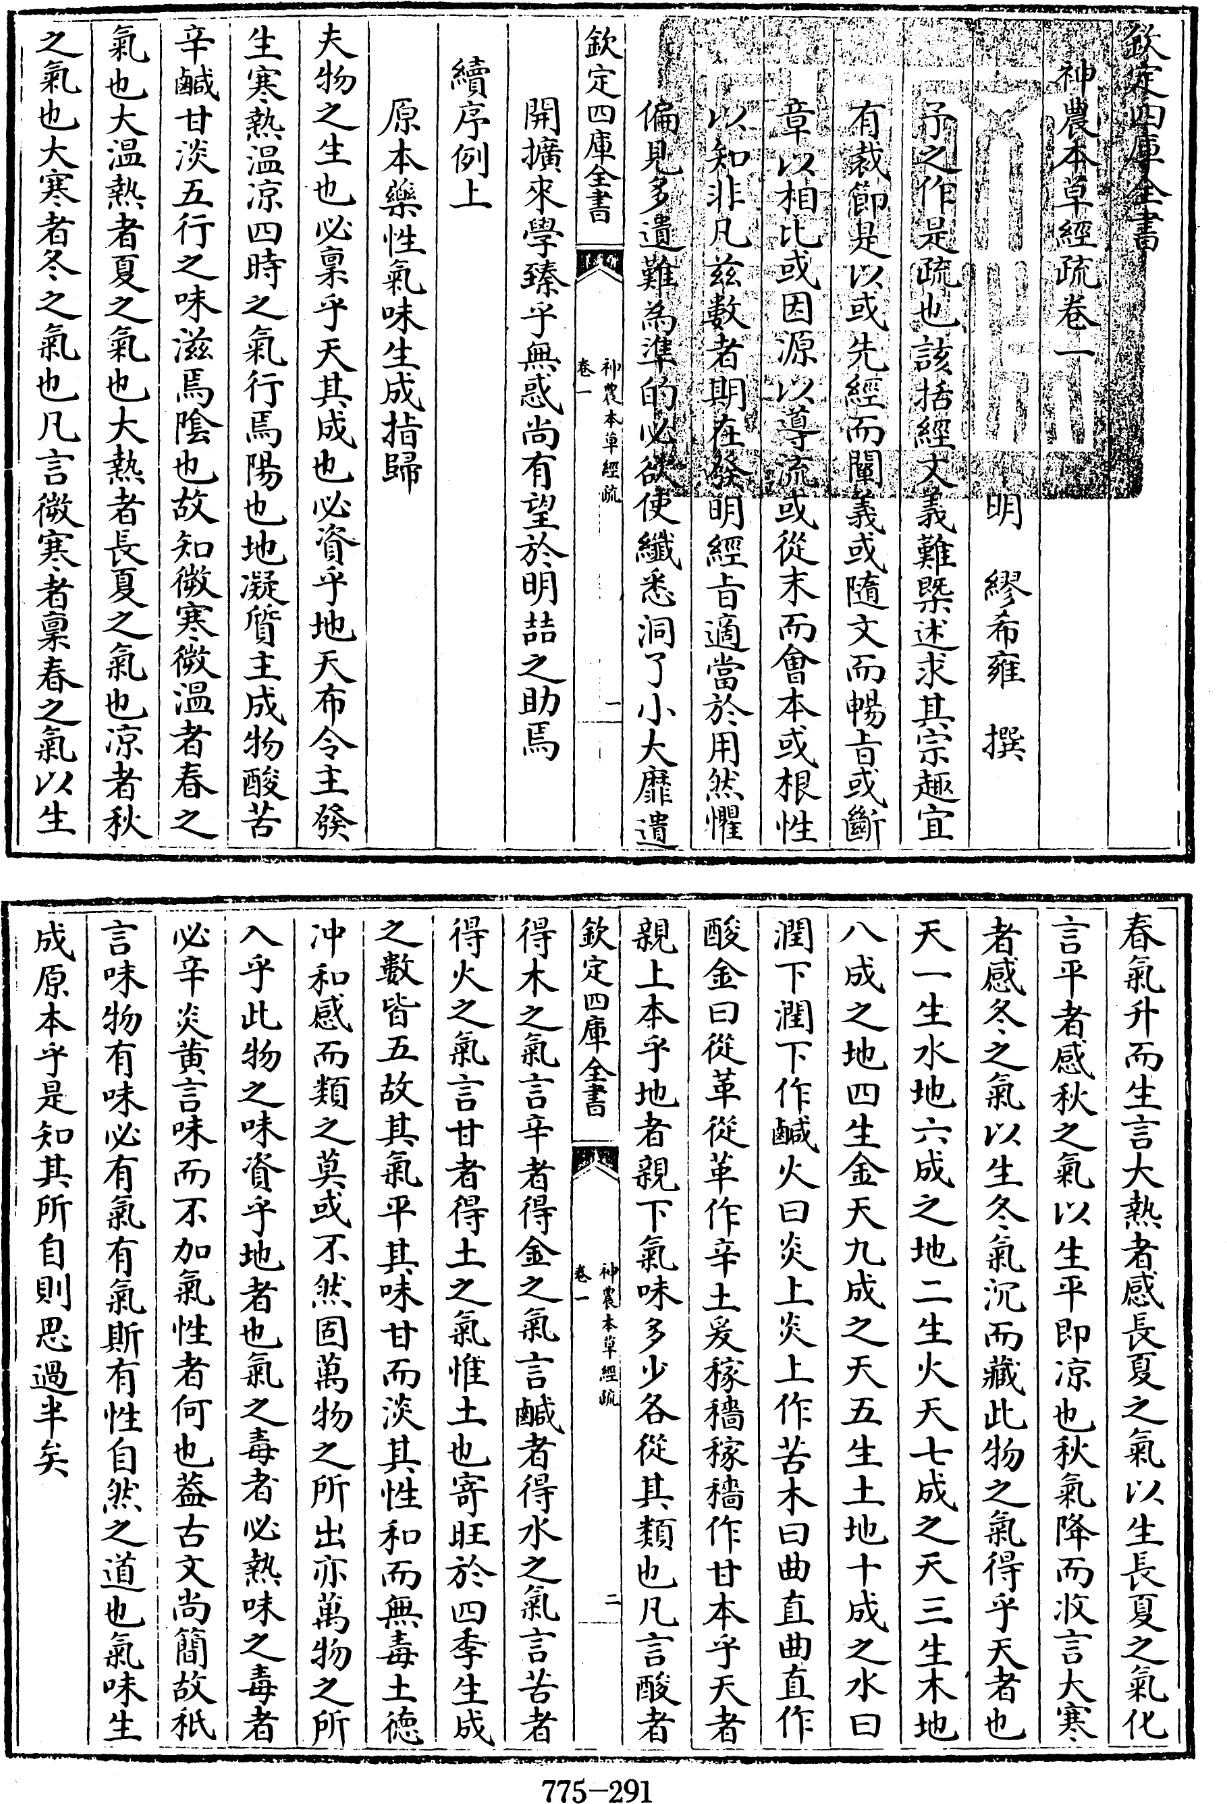 欽定四庫全書
神農本草經疏卷一
明 繆希雍 撰
予之作是疏也該括經文義難槩述求其宗趣宜
有裁節是以或先經而闡義或隨文而暢旨或斷
章以相比或因源以導流或從末而會本或根性
以知非凡兹數者期在發明經旨適當於用然懼
偏見多遺難為準的必欲使纖悉洞了小大靡遺
欽定四庫全書
神農本草經疏
卷一
一
開擴來學臻乎無惑尚有望於明喆之助焉
續序例上
原本藥性氣味生成指歸
夫物之生也必稟乎天其成也必資乎地天布令主發
生寒熱温凉四時之氣行焉陽也地凝質主成物酸苦
辛鹹甘淡五行之味滋焉陰也故知微寒微温者春之
氣也大温熱者夏之氣也大熱者長夏之氣也凉者秋
之氣也大寒者冬之氣也凡言微寒者稟春之氣以生
春氣升而生言大熱者感長夏之氣以生長夏之氣化
言平者感秋之氣以生平即凉也秋氣降而收言大寒
者感冬之氣以生冬氣沉而藏此物之氣得乎天者也
天一生水地六成之地二生火天七成之天三生木地
八成之地四生金天九成之天五生土地十成之水曰
潤下潤下作鹹火曰炎上炎上作苦木曰曲直曲直作
酸金曰從革從革作辛土爰稼穡稼穡作甘本乎天者
親上本乎地者親下氣味多少各從其類也凡言酸者
欽定四庫全書
神農本草經疏
卷一
二
得木之氣言辛者得金之氣言鹹者得水之氣言苦者
得火之氣言甘者得土之氣惟土也寄旺於四季生成
之數皆五故其氣平其味甘而淡其性和而無毒土德
冲和感而類之莫或不然固萬物之所出亦萬物之所
入乎此物之味資乎地者也氣之毒者必熱味之毒者
必辛炎黄言味而不加氣性者何也葢古文尚簡故衹
言味物有味必有氣有氣斯有性自然之道也氣味生
成原本乎是知其所自則思過半矣
775-291